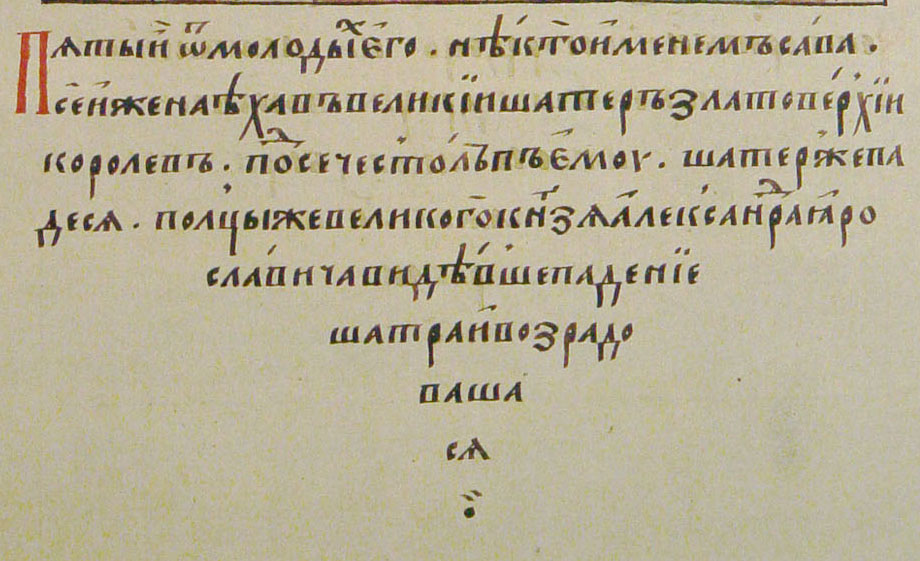 Пѧтый ѿ молодыⷯ єго . нѣктⷪ именемъ сава .
сей же наѣхавъ великїи шатеръ златоверхїи
королевъ . поⷣсече столъпъ ємоу . шатер же па
десѧ . полцы же великогⷪ кнⷾзѧ алекⷭанⷣра ꙗро
славича видѣвше паденїе
шатра и возрадо
ваша
сѧ